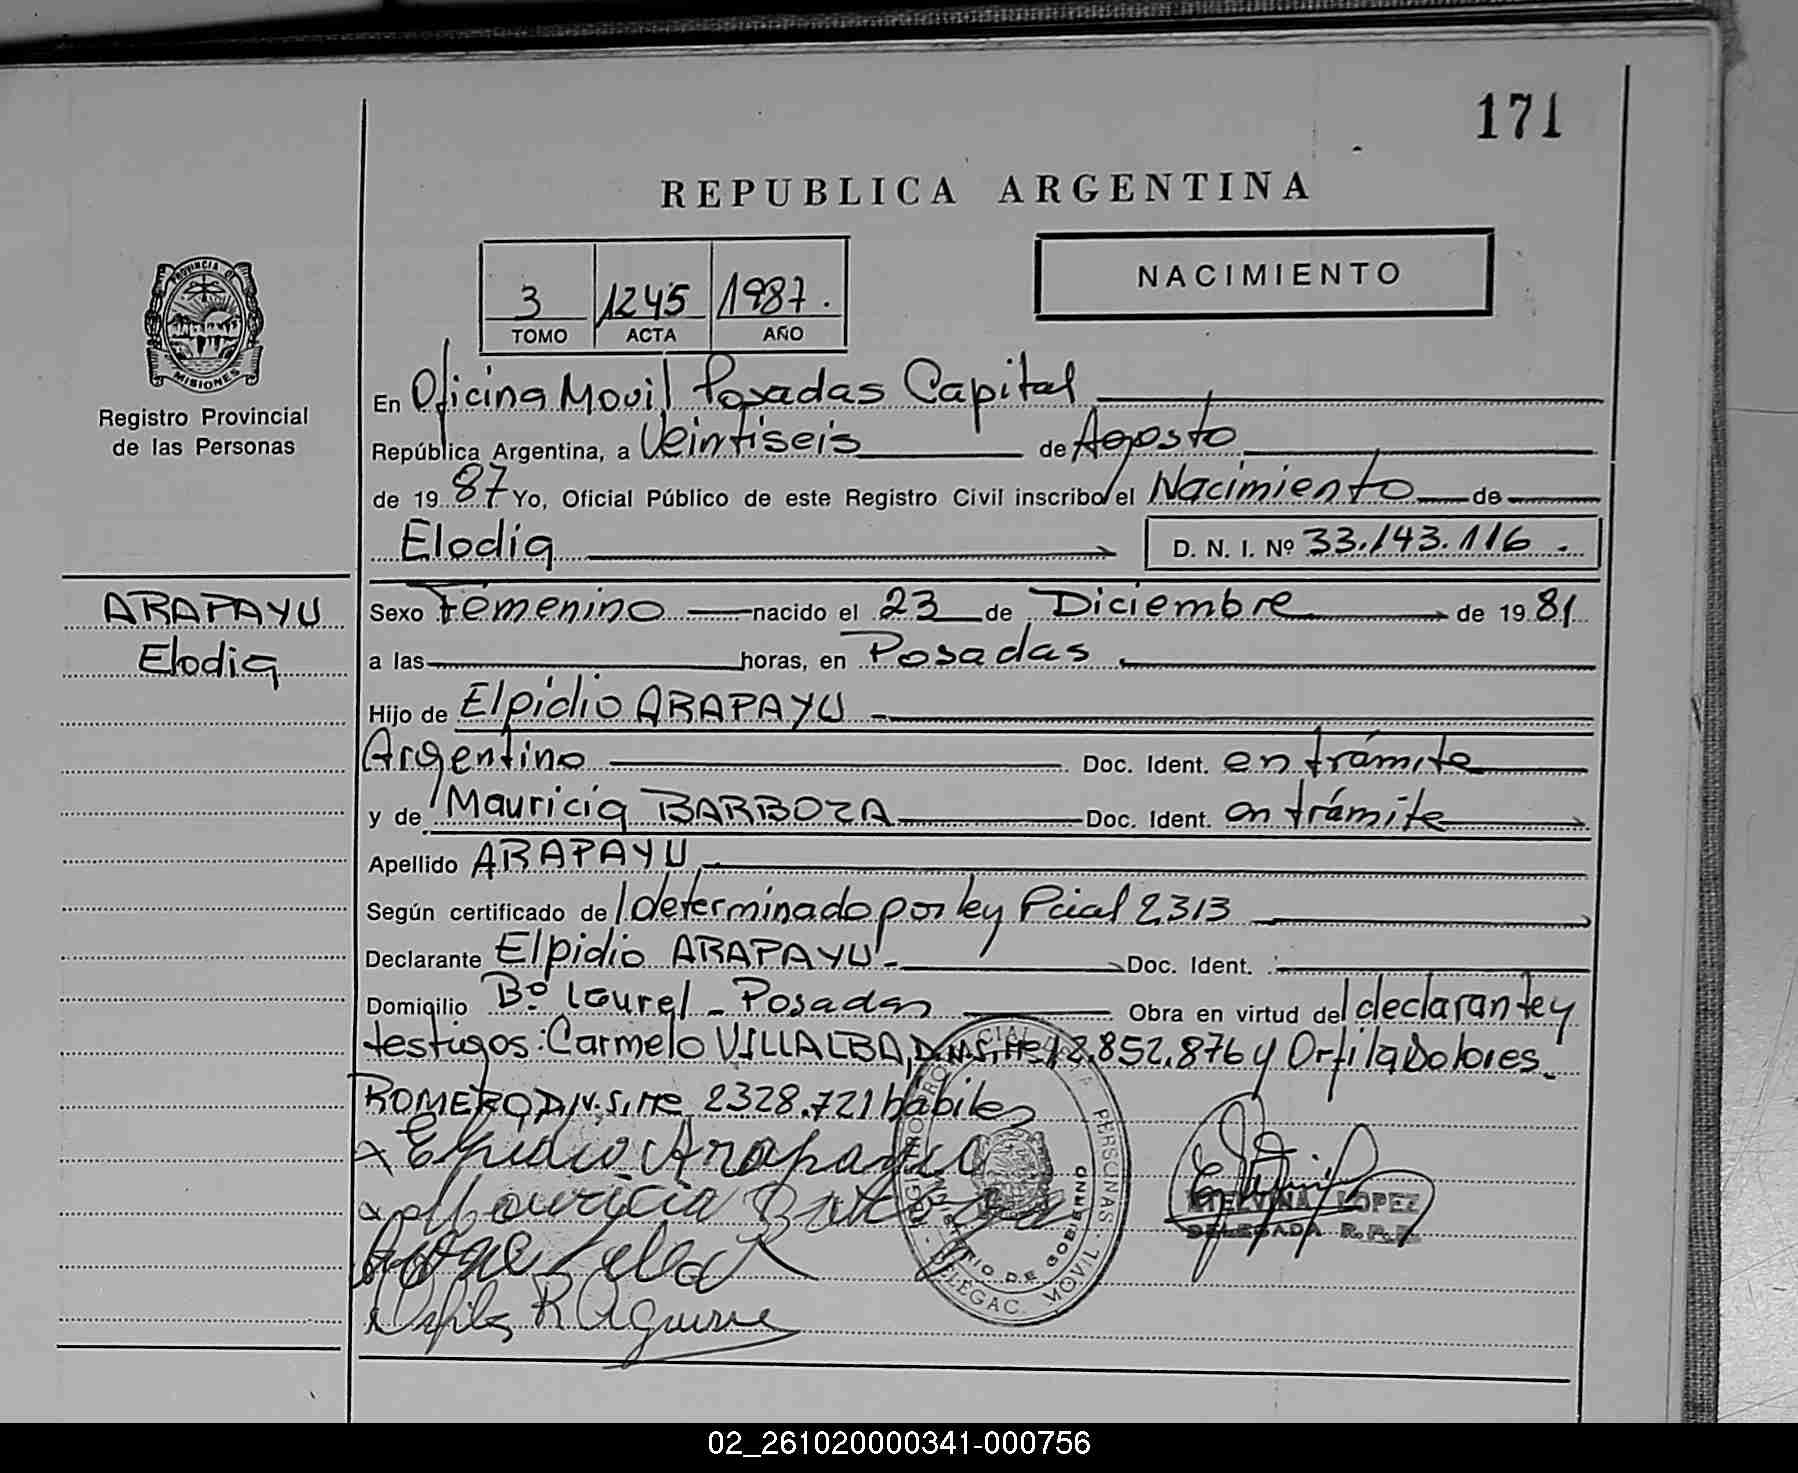 171
REPUBLICA ARGENTINA
3 1245 1987.
TOMO ACTA AÑO
NACIMIENTO
PROVINCIA DE
MISIONES
Registro Provincial
de las Personas
ARAPAYU
Elodia
En Oficina Movil Posadas Capital
República Argentina, a Veintiseis de Agosto
de 19 87 Yo, Oficial Público de este Registro Civil inscribo el Nacimiento de
Elodia D. N. I. Nº 33.143.116.
Sexo Femenino nacido el 23 de Diciembre de 19 81
a las horas, en Posadas
Hijo de Elpidio ARAPAYU
Argentino Doc. Ident. en trámite
y de Mauricia BARBOZA Doc. Ident. en trámite
Apellido ARAPAYU
Según certificado de lo determinado por ley Pcial 2313
Declarante Elpidio ARAPAYU Doc. Ident.
Domicilio Bº Laurel - Posadas Obra en virtud del declarante y
testigos: Carmelo VILLALBA, 2.852.876 y Orfila Dolores
ROMERO 2328.721 hábiles
Elpidio Arapayu
Mauricia
Orfila R Aguirre
PERSONAS
MINISTERIO DE GOBIERNO
DELEGAC. MOVIL
ETELVINA LOPEZ
DELEGADA R.P.P.
02_261020000341-000756